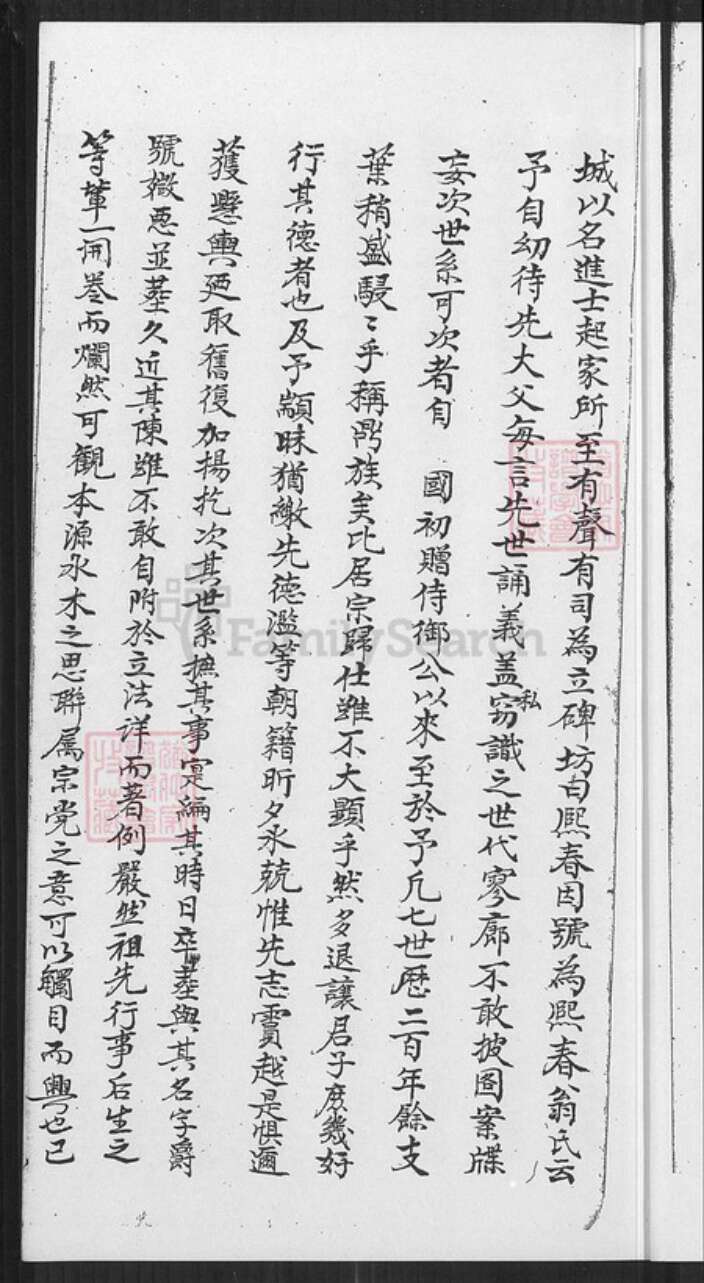 城以名進士起家所至有聲有司為立碑坊曰熙春因號為熙春翁氏云
予自幼待先大父每言先世誦義盖私窃識之世代寥廓不敢披圖案牒
妄次世系可次者自 國初贈侍御公以來至於予凡七世歷二百年餘支
葉稍盛駸〻乎稱鼎族矣比居宗歸仕雖不大顯乎然多退讓君子庶幾好
行其德者也及予顓昧猶繳先德濫等朝籍昕夕氷兢惟先志霣越是惧邇
獲懸輿廼取舊復加揚扢次其世系摭其事寔編其時日卒塟與其名字爵
號媺惡並塟久近其陳雖不敢自附於立法详而著例嚴然祖先行事后生之
等輩一開卷而爛然可觀本源水木之思聯属宗党之意可以觸目而興也已
FamilySearch